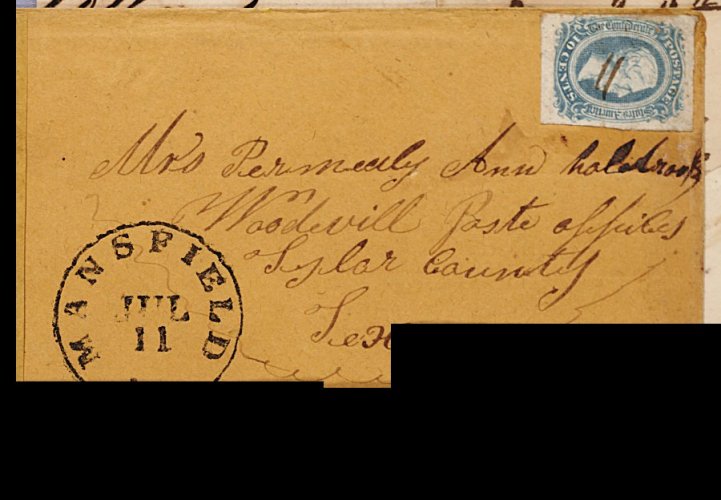 THE CONFEDERATE STATES AMERICA
POSTAGE
10 CENTS
11
Mrs Permealy Ann holdbrooks
Woodevill Poste offices
Tylar County
MANSFIELD
JUL
11